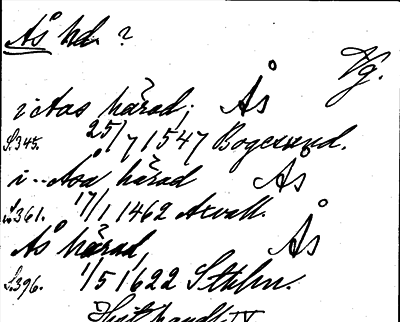 Ås hd. ?
Vg.
i Aas härad. Ås
S. 345. 25/7 1547 Bogesund.
i - Åsa härad Ås
S. 361. 17/1 1462 Axvall.
Ås härad, Ås
S. 396. 1/5 1622 Sthlm.